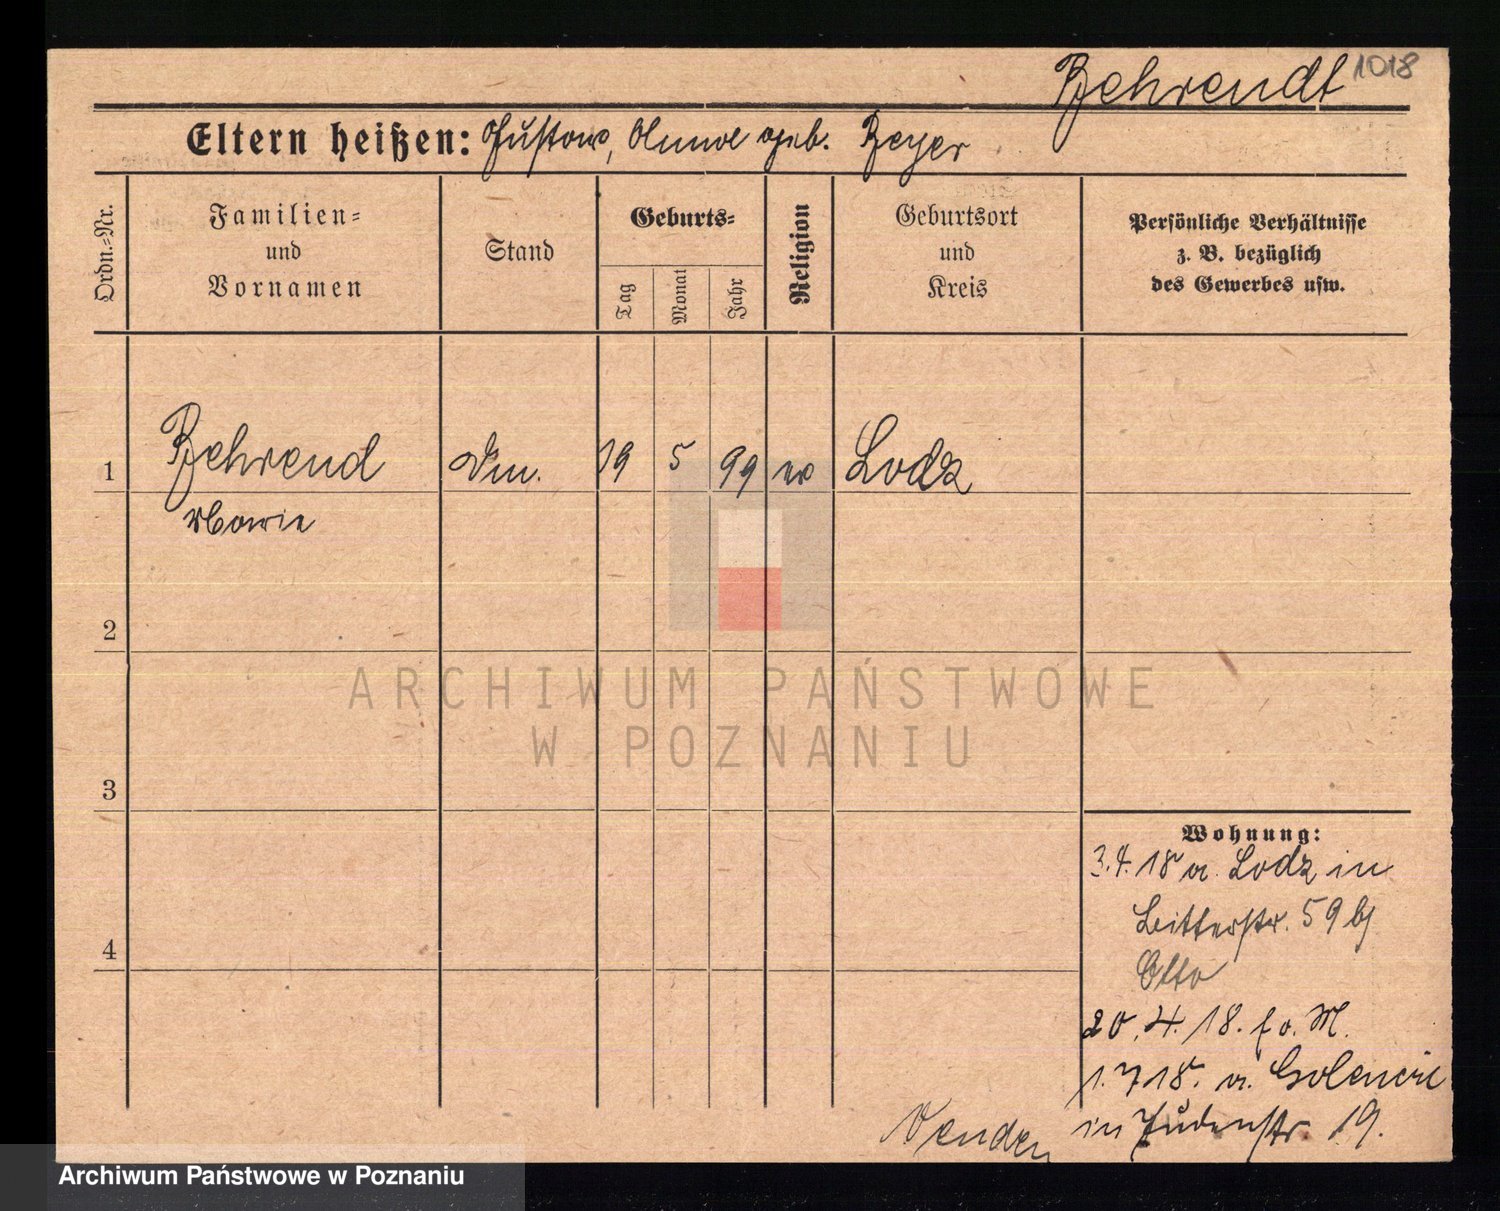 Behrendt 1018
Eltern heißen: Gustav, Anna geb. Beyer
Ordn.=Nr.
Familien=
und
Vornamen
Stand
Geburts=
Tag
Monat
Jahr
Religion
Geburtsort
und
Kreis
Persönliche Verhältnisse
z. B. bezüglich
des Gewerbes usw.
1 Behrend 19 5 99 ev Lodz
Marie
2
ARCHIWUM PAŃSTWOWE
W POZNANIU
3
4
Wohnung:
3.4.18 v. Lodz in
Bitterstr. 59 bj
Otto
20.4.18. f v. M.
1.7 18. v. Golencin
in Judenstr. 19.
Wenden
Archiwum Państwowe w Poznaniu